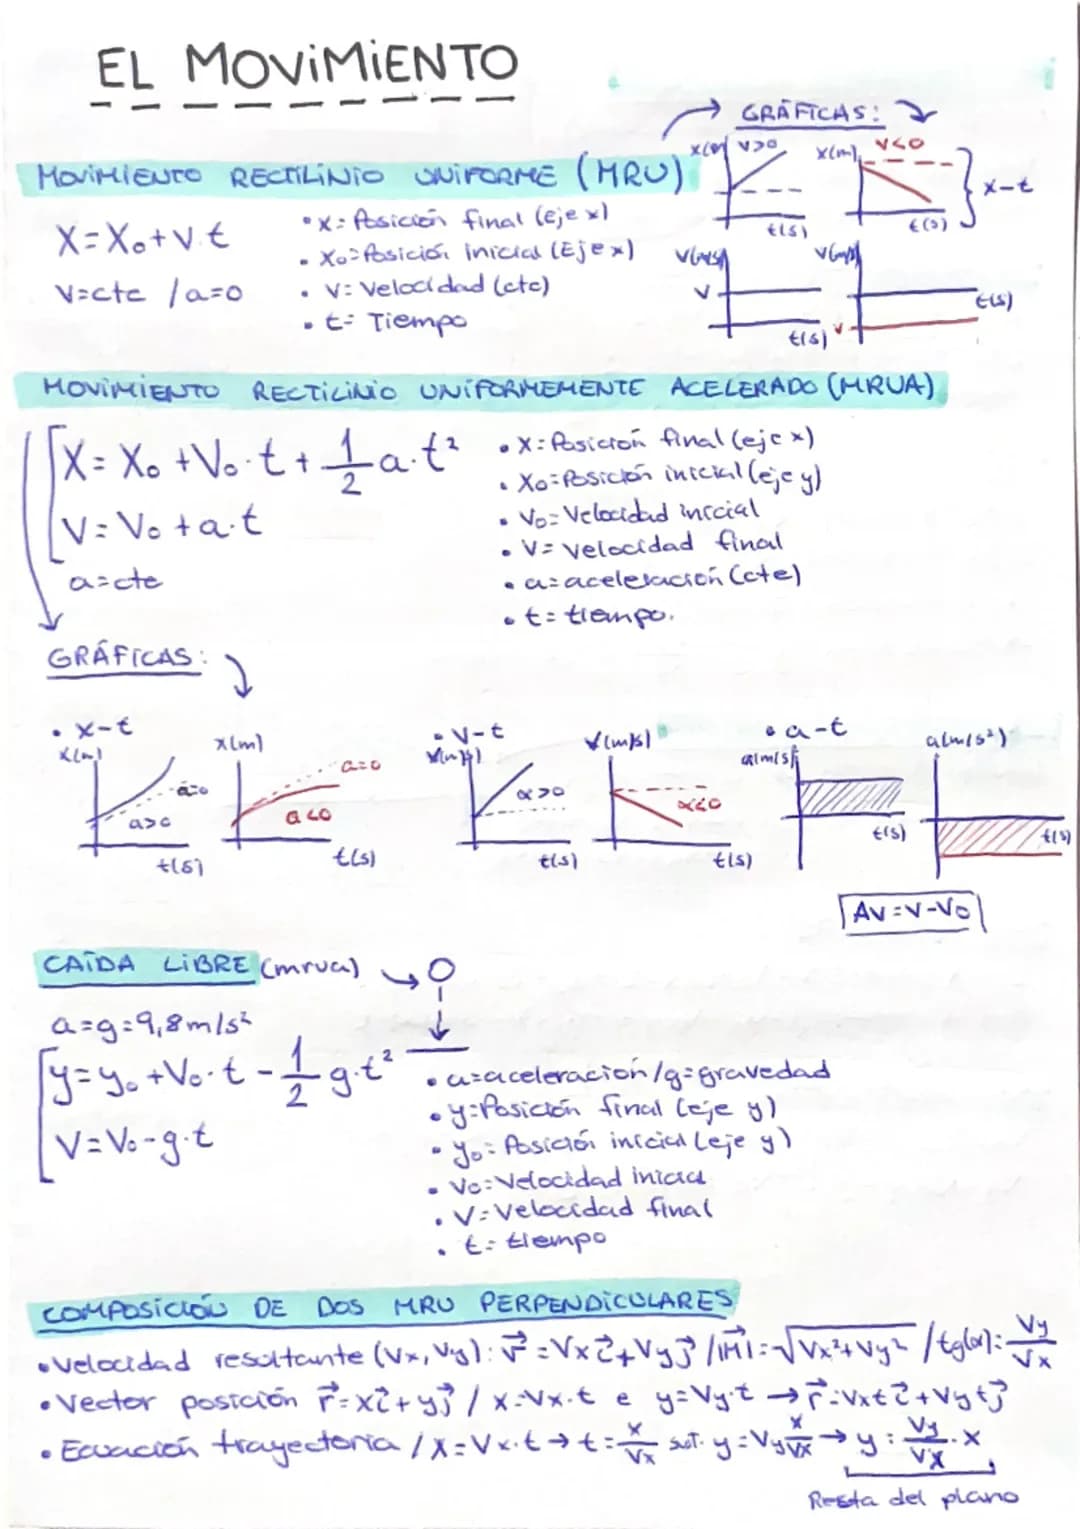 EL MOViMiENTO
GRÁFICAS:
MOViMiENTO RECTiLiNiO UNiFORME (MRU)
x(m) v>0
x(m) v<0
x-t
t(s)
t(s)
X=X₀+v.t
V=cte /a=0
• x= Posición final (eje x)
• X₀= Posición inicial (Eje x)
• V: Velocidad (cte)
• t= Tiempo
v(m/s)
v(m/s)
V
t(s)
t(s)
V
MOViMiENTO RECTiLiNiO UNiFORMEMENTE ACELERADO (MRUA)
X= X₀ +V₀·t + 1/2 a·t²
V= V₀ +a·t
a=cte
• X: Posición final (eje x)
• X₀= Posición inicial (eje y)
• V₀= Velocidad inicial
• V= velocidad final
• a= aceleración (cte)
• t= tiempo.
GRÁFICAS:
• x-t
x(m)
a=0
a>0
t(s)
x(m)
a=0
a<0
t(s)
• v-t
v(m/s)
α>0
t(s)
v(m/s)
α<0
t(s)
• a-t
a(m/s)
t(s)
a(m/s²)
t(s)
AV=V-V₀
CAÍDA LiBRE (mrua)
a=g=9,8m/s²
y=y₀ +V₀·t - 1/2 g·t²
V=V₀-g·t
• a=aceleración/g=gravedad
• y=Posición final (eje y)
• y₀= Posición inicial (eje y)
• V₀=Velocidad inicial
• V=Velocidad final
• t= tiempo
COMPOSiCIÓN DE DOS MRU PERPENDiCULARES
• Velocidad resultante (Vx, Vy): v⃗ = Vx i⃗ + Vy j⃗ / |M⃗| = √Vx²+Vy² / tg(α) = Vy/Vx
• Vector posición r⃗ = x i⃗ + y j⃗ / x=Vx·t e y=Vy·t → r⃗: Vxt i⃗ + Vyt j⃗
• Ecuación trayectoria / X=Vx·t → t= x/Vx sut. y=Vy x/Vx → y = Vy/Vx · x
Resta del plano